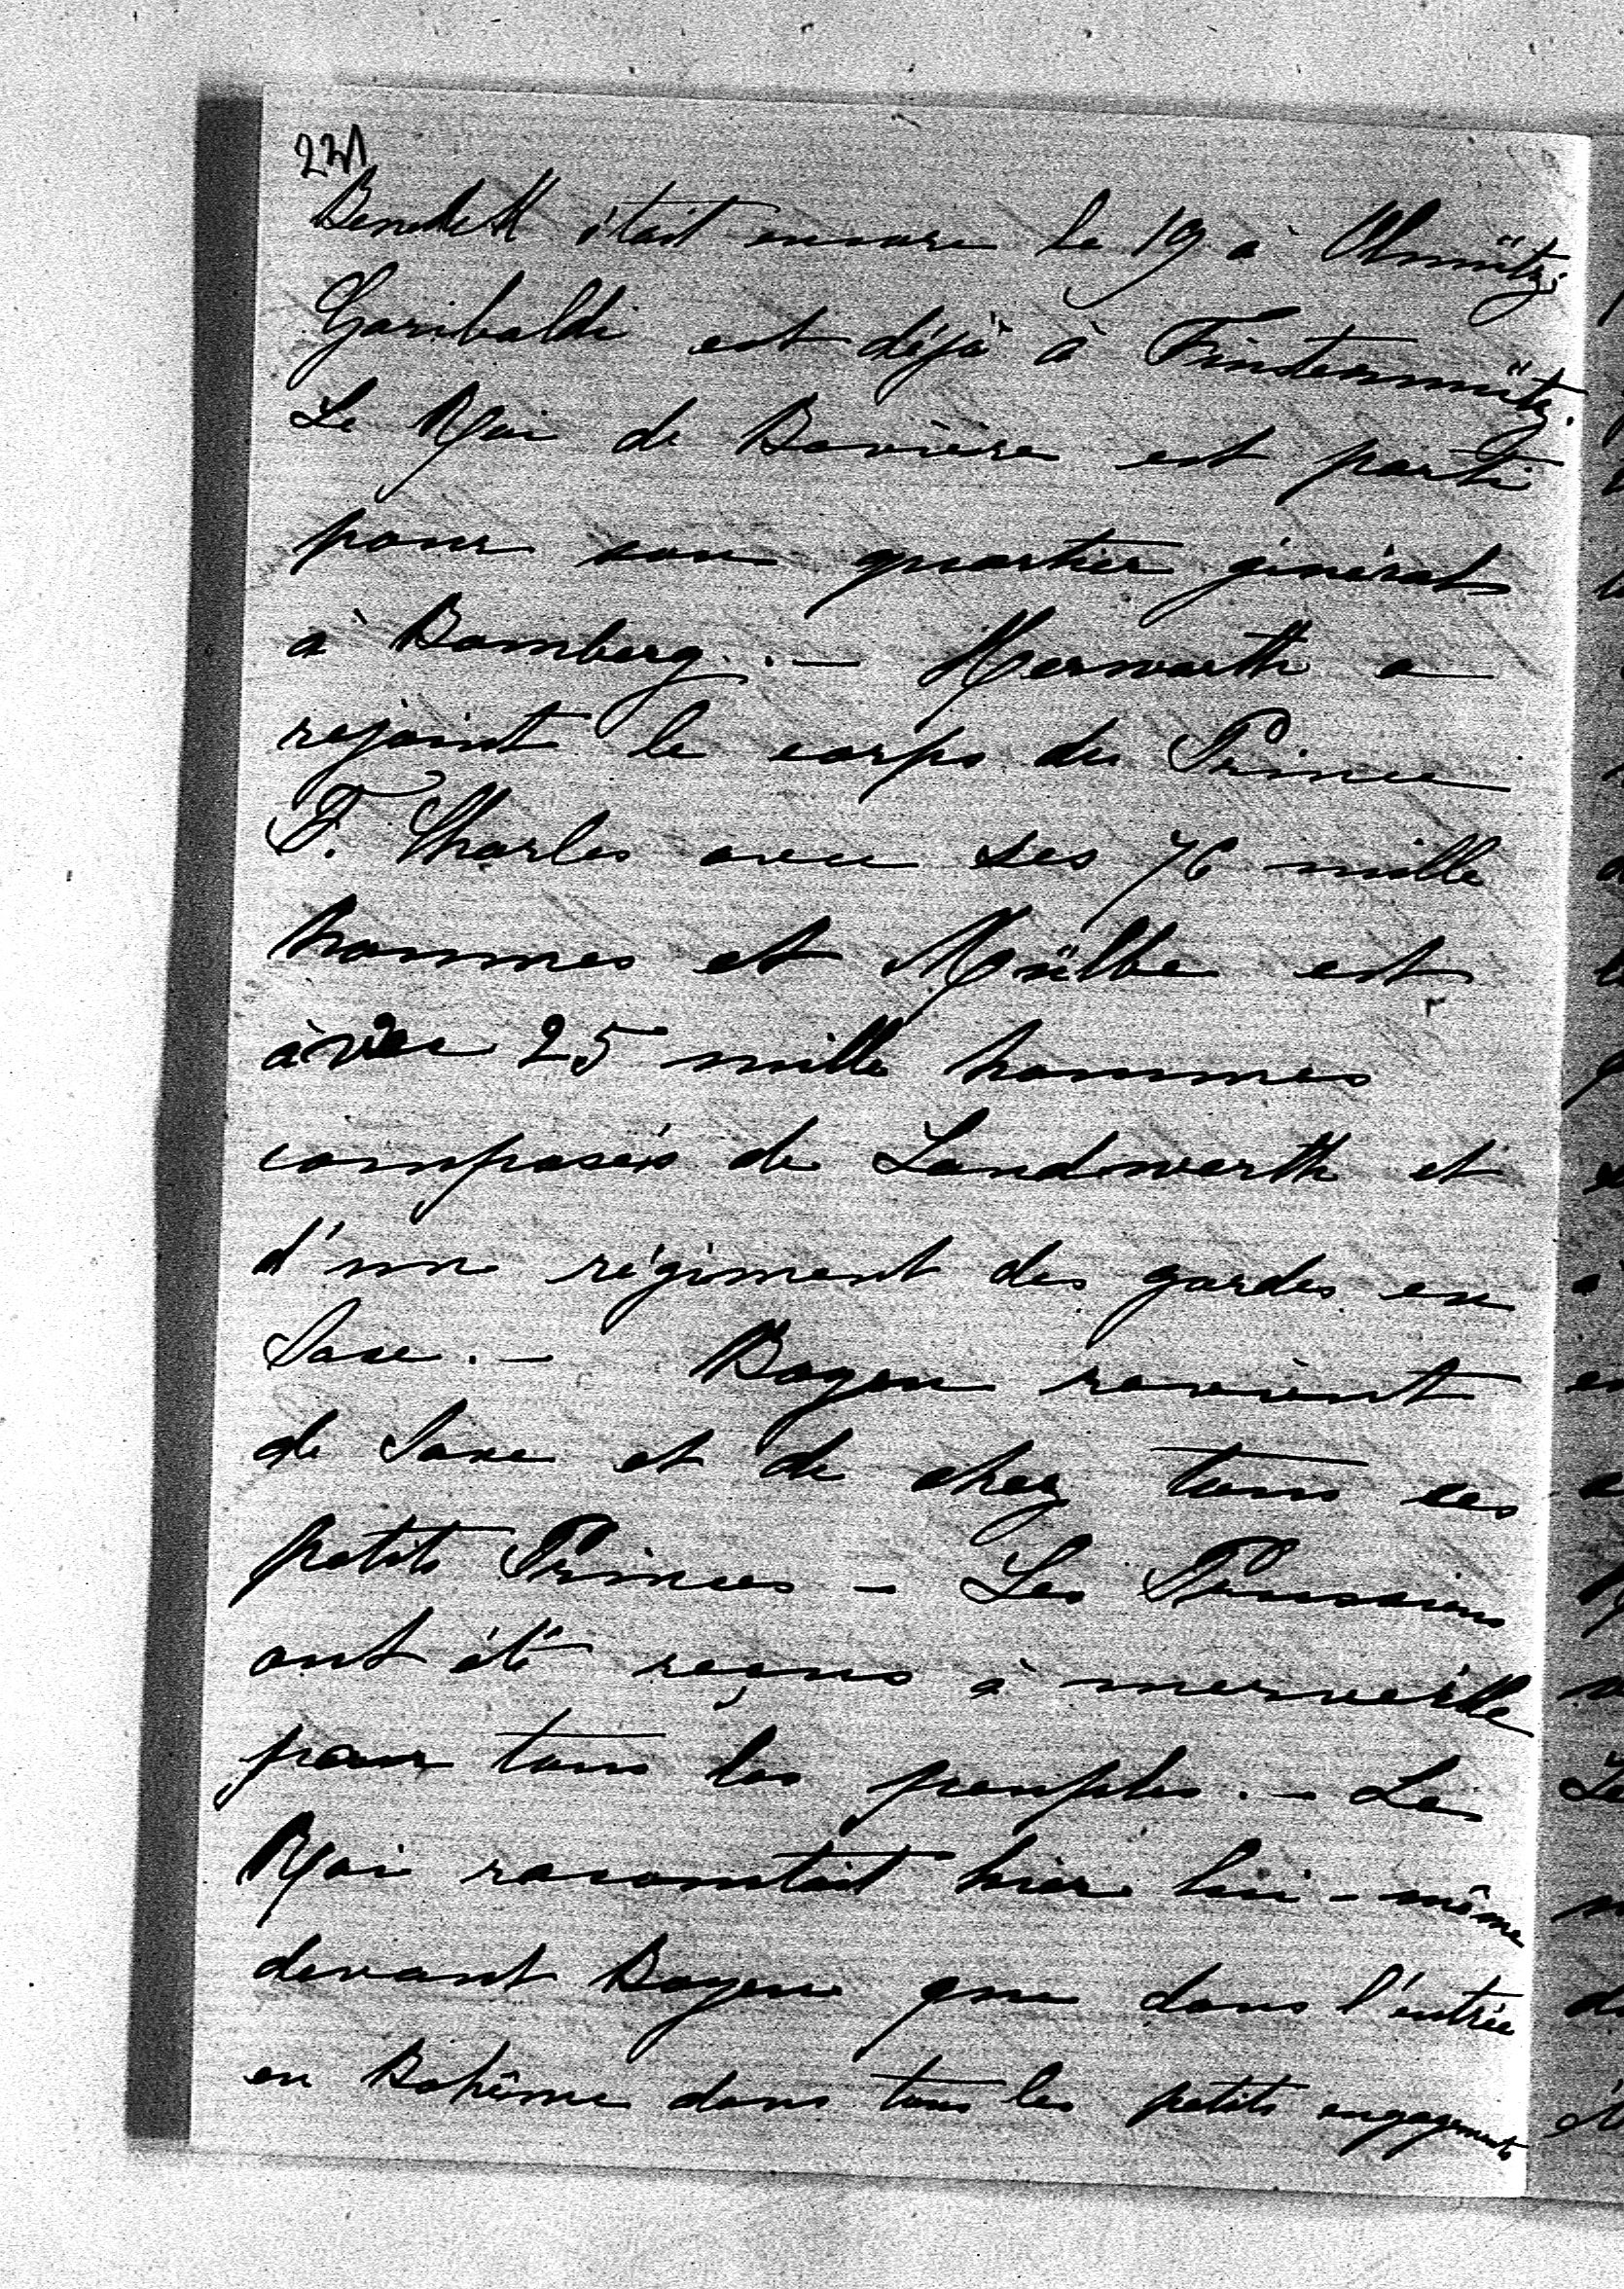 221
Benedekt était encore le 19 à Olmütz;
Garibaldi est déjà à Finstermütz.
Le Roi de Bavière est parti
pour son quartier général
à Bamberg. – Herwarth a
rejoint le corps du Prince
F. Charles avec ses 76 mille
hommes et Mülbe est
avec 25 mille hommes
composés de Landwerth et
d'une régiment des gardes en
Saxe. – Boyen revient
de Saxe et de chez tous ces
petits Princes – Les Prussiens
ont été reçus à merveille
par tous les peuples. – Le
Roi racontait hier lui-même
devant Boyen que dans l'entrée
en Bohême dans tous les petits engagements